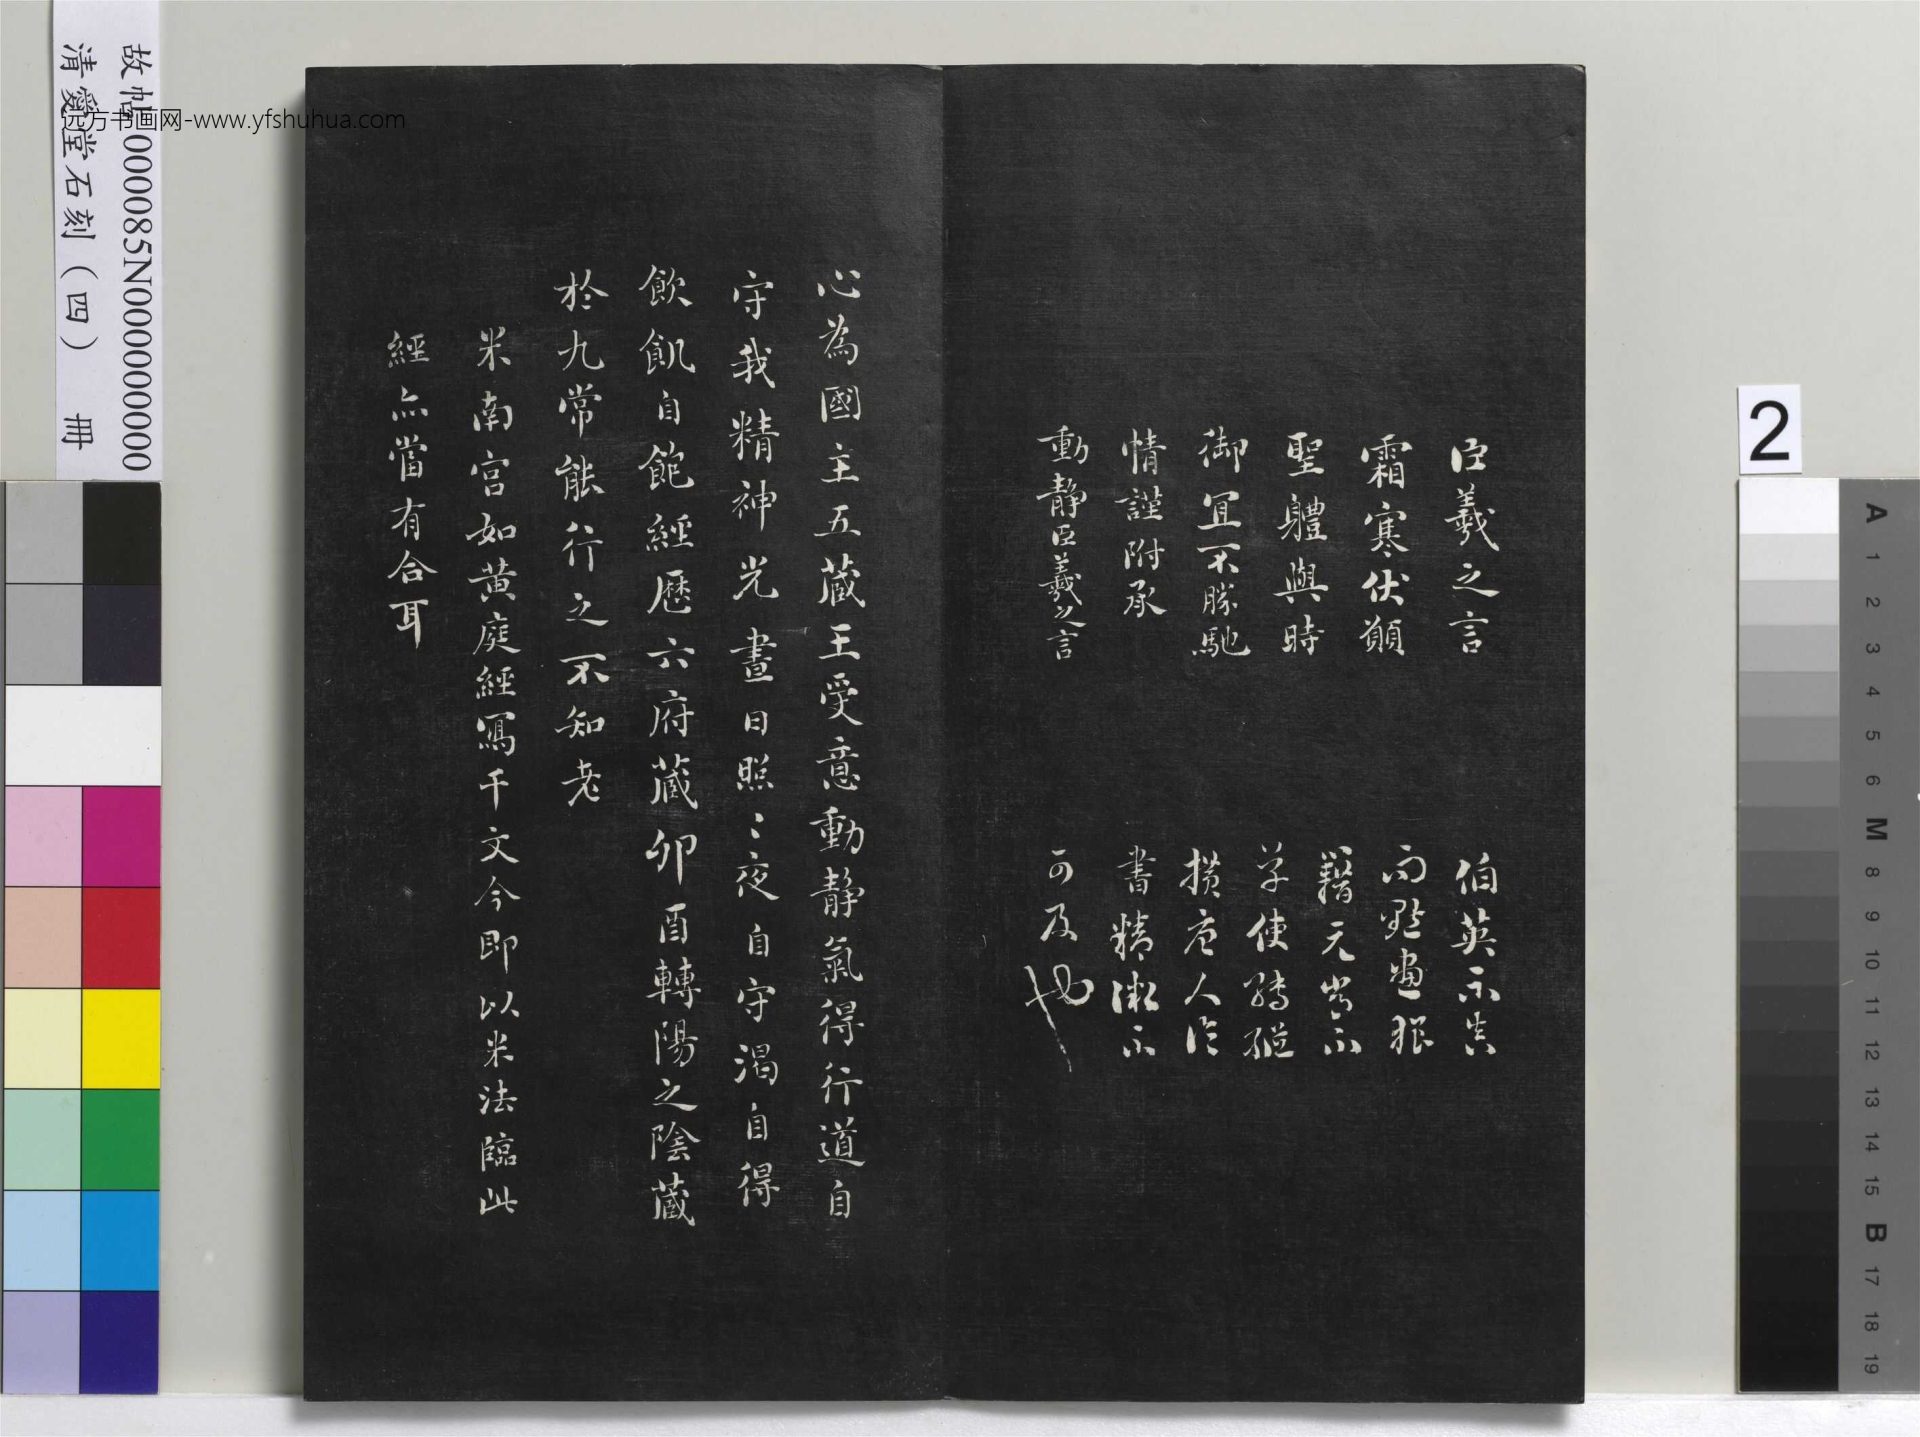 臣羲之言
霜寒伏願
聖體與時
御宜不勝馳
情謹附承
動靜臣羲之言
伯英不真
而點畫狼
籍元常不
草使轉縱
橫唐人作
書精微不
可及也
心為國主五藏王受意動靜氣得行道自
守我精神光晝日照〻夜自守渴自得
飲飢自飽經歷六府藏卯酉轉陽之陰藏
於九常能行之不知老
米南宮如黃庭經寫千文今即以米法臨此
經亦當有合耳
故帖000085N000000000
清愛堂石刻（四） 冊
远方书画网-www.yfshuhua.com
2
A
1
2
3
4
5
6
M
8
9
10
11
12
13
14
15
B
17
18
19